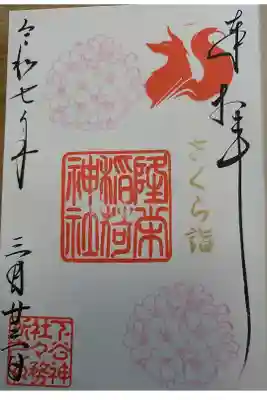 奉拝
さくら詣
隆栄
稲荷
神社
令和七年
三月廿二日
下谷神
社々務
所印